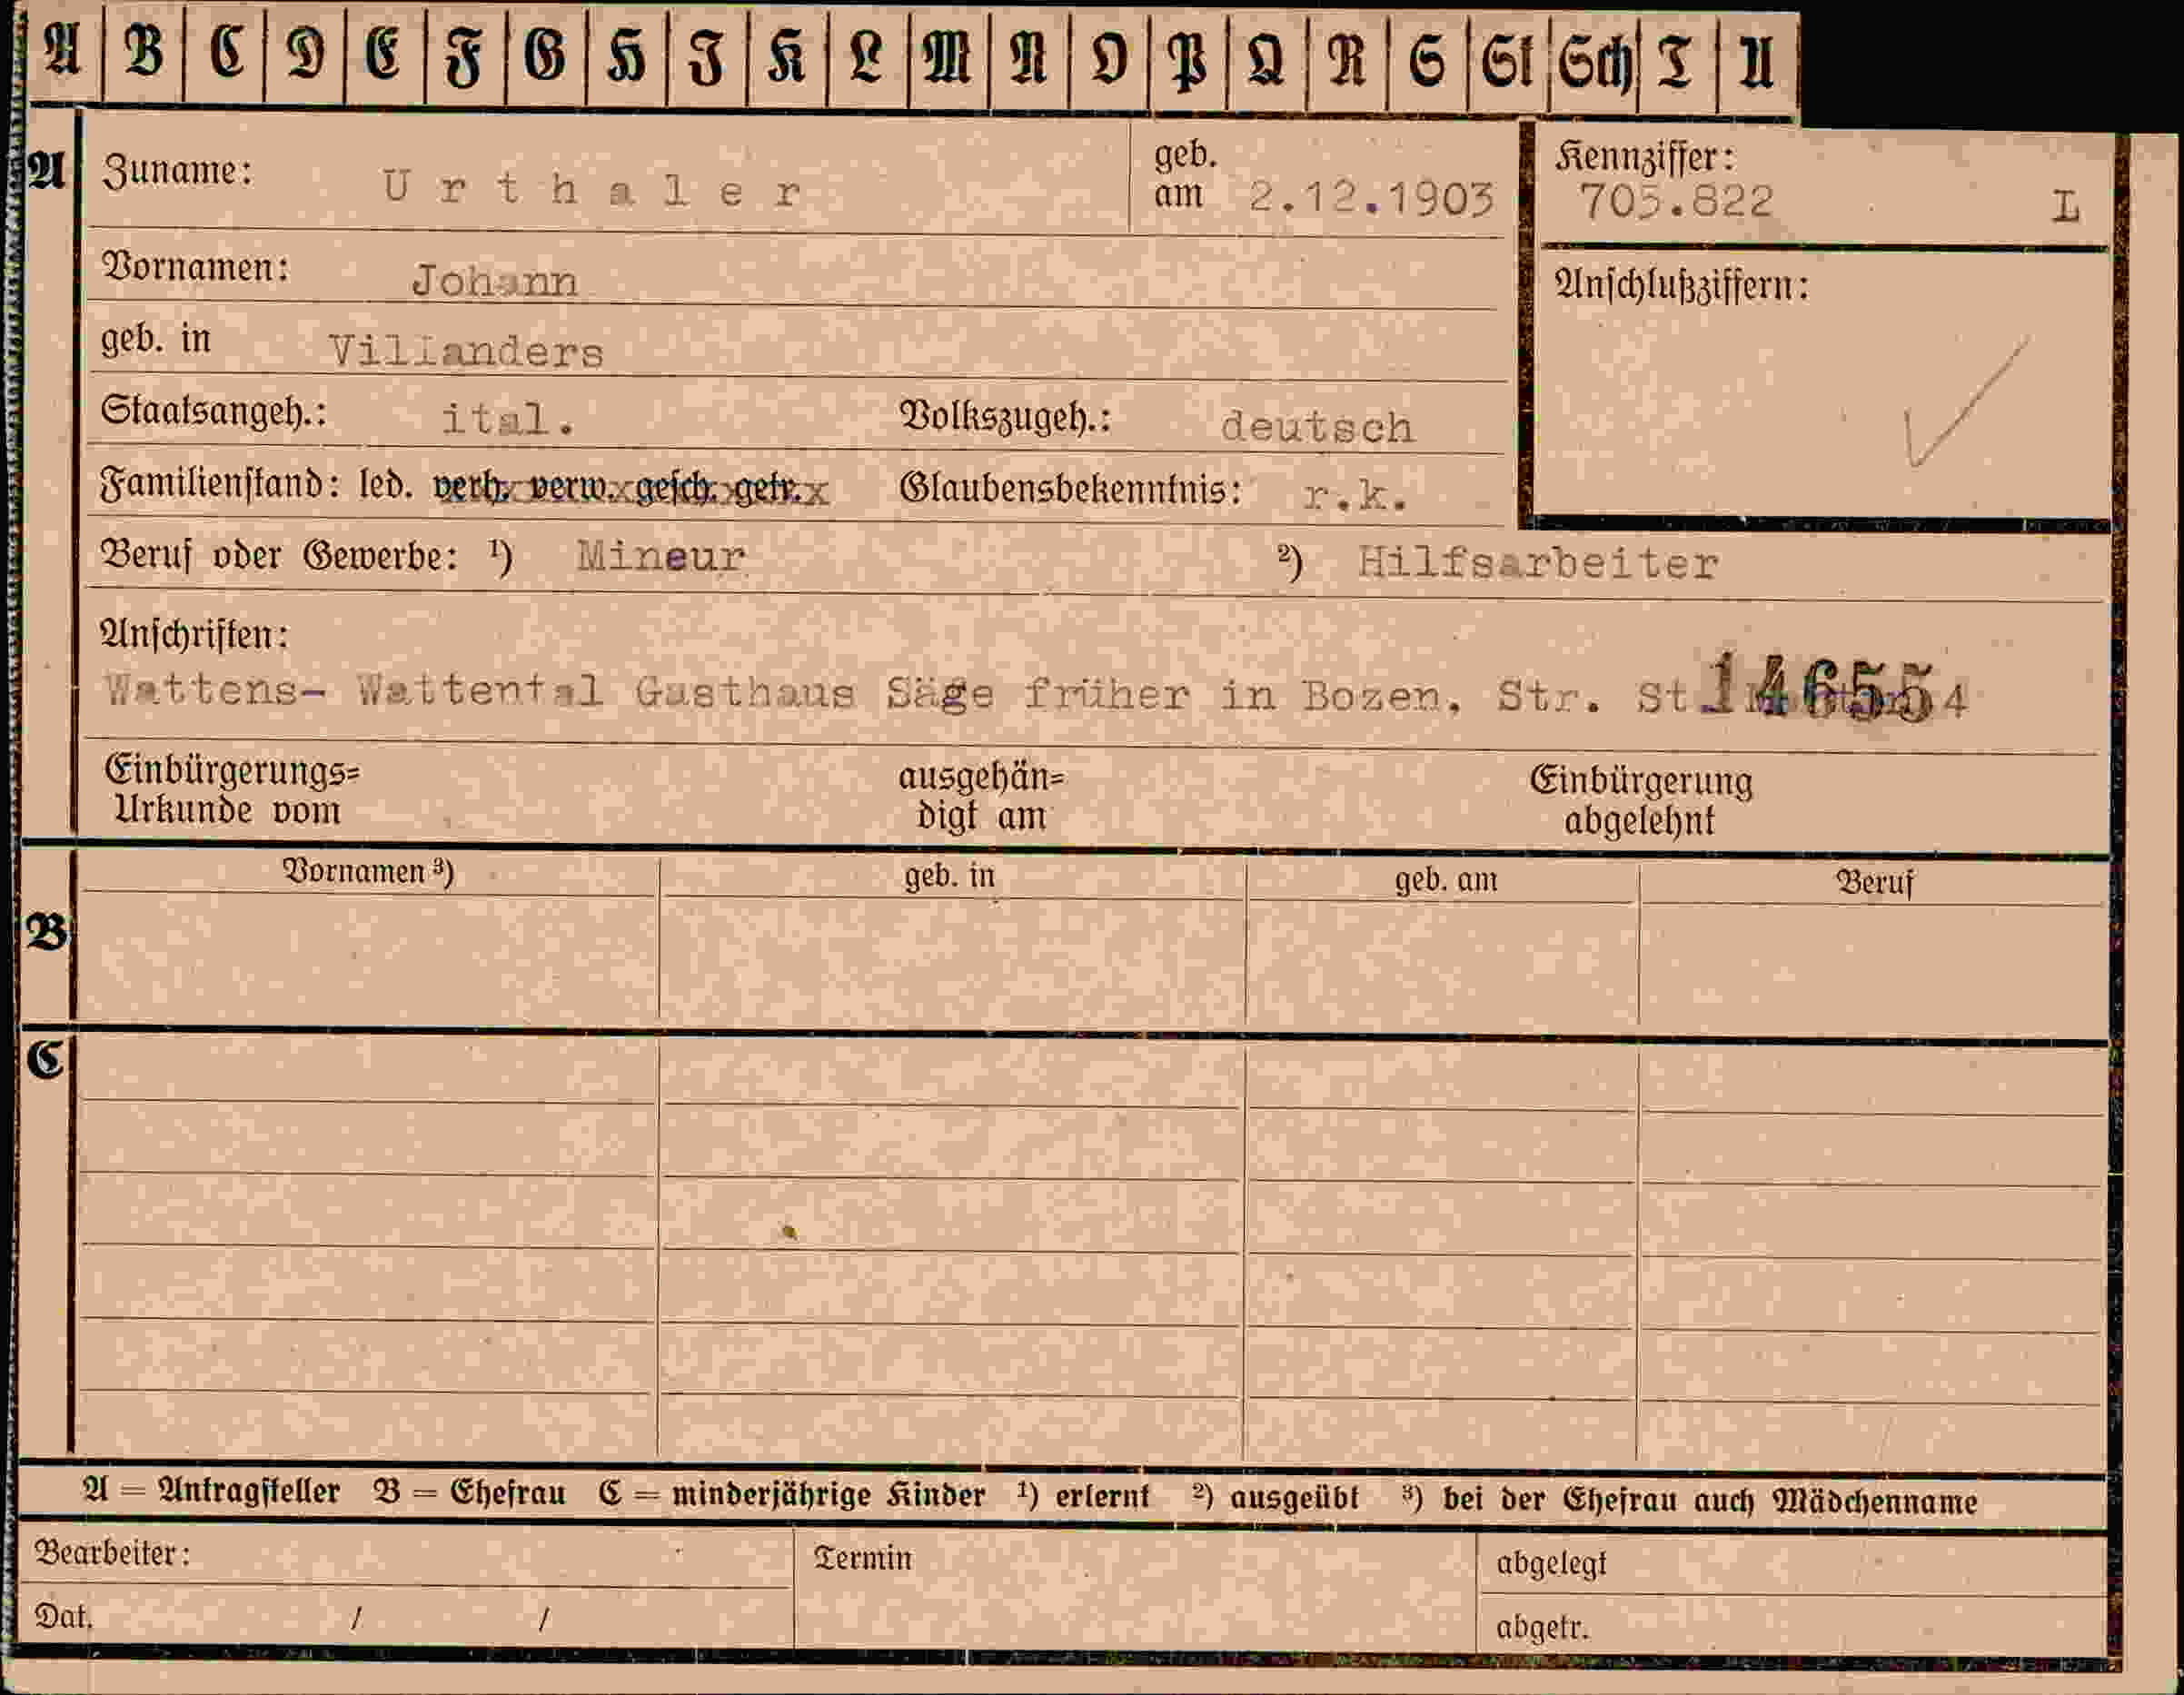 A B C D E F G H J K L M N O P Q R S St Sch T U
A Zuname: Urthaler geb. am 2.12.1903 Kennziffer: 705.822 L
Vornamen: Johann Anschlußziffern:
geb. in Villanders
Staatsangeh.: ital. Volkszugeh.: deutsch
Familienstand: led. verh. verw. gesch. getr. Glaubensbekenntnis: r.k.
Beruf oder Gewerbe: ¹) Mineur ²) Hilfsarbeiter
Anschriften:
Wattens- Wattental Gasthaus Säge früher in Bozen, Str. St. 14655 4
Einbürgerungs= ausgehän= Einbürgerung
Urkunde vom digt am abgelehnt
Vornamen ³) geb. in geb. am Beruf
B
C
A = Antragsteller B = Ehefrau C = minderjährige Kinder ¹) erlernt ²) ausgeübt ³) bei der Ehefrau auch Mädchenname
Bearbeiter: Termin abgelegt
Dat. / / abgetr.